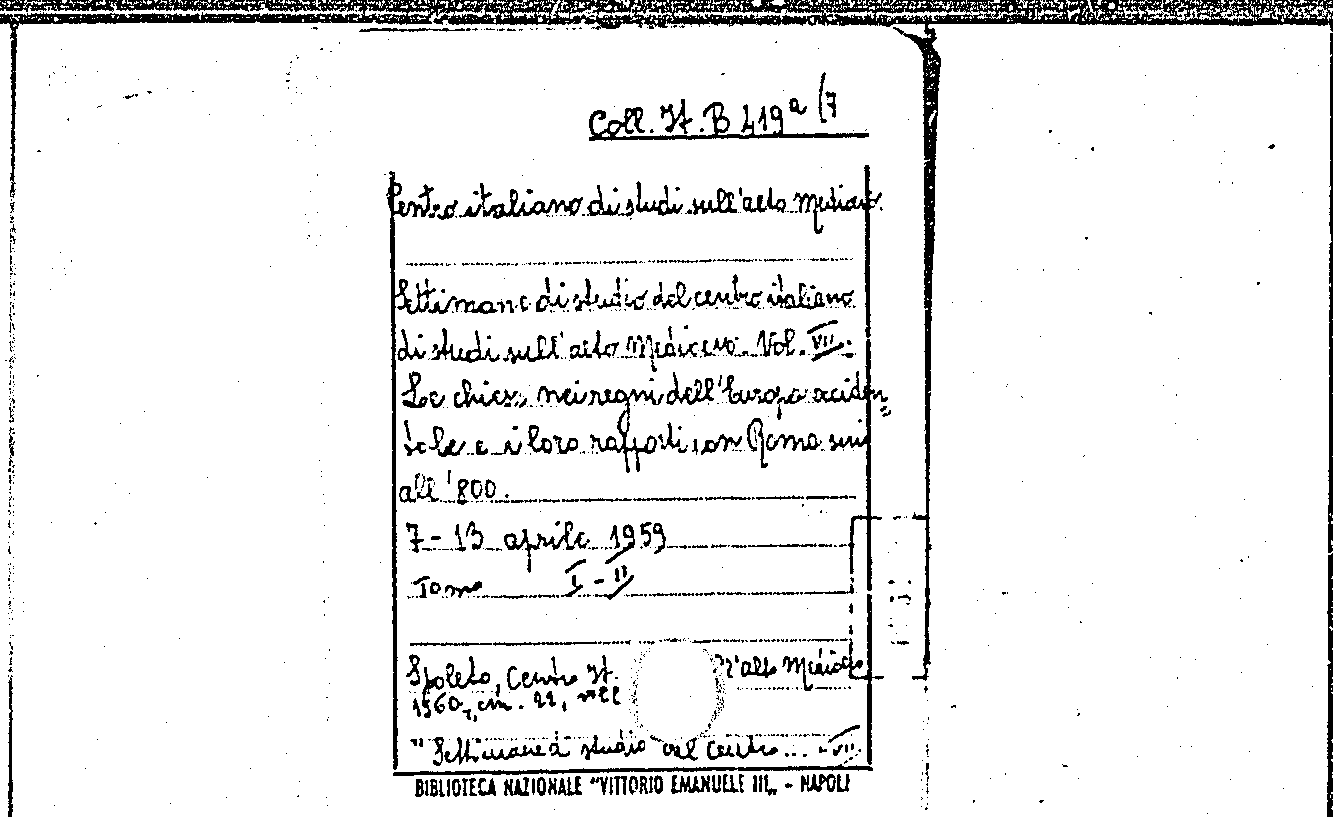 Coll. It. B 419 a (7
Centro italiano di studi sull'alto Medioev.
Settimane di studio del centro italiano
di studi sull'alto Medioevo. Vol. VII.
Le chiese nei regni dell'Europa acciden=
tale e i loro rapporti con Roma sino
all'800.
7-13 aprile 1959
Tomo I-II
Spoleto, Centro It. l'alto Medioevo
1960, cm. 22,
"Settimane di studio del Centro... - VII
BIBLIOTECA NAZIONALE "VITTORIO EMANUELE III„ - NAPOLI